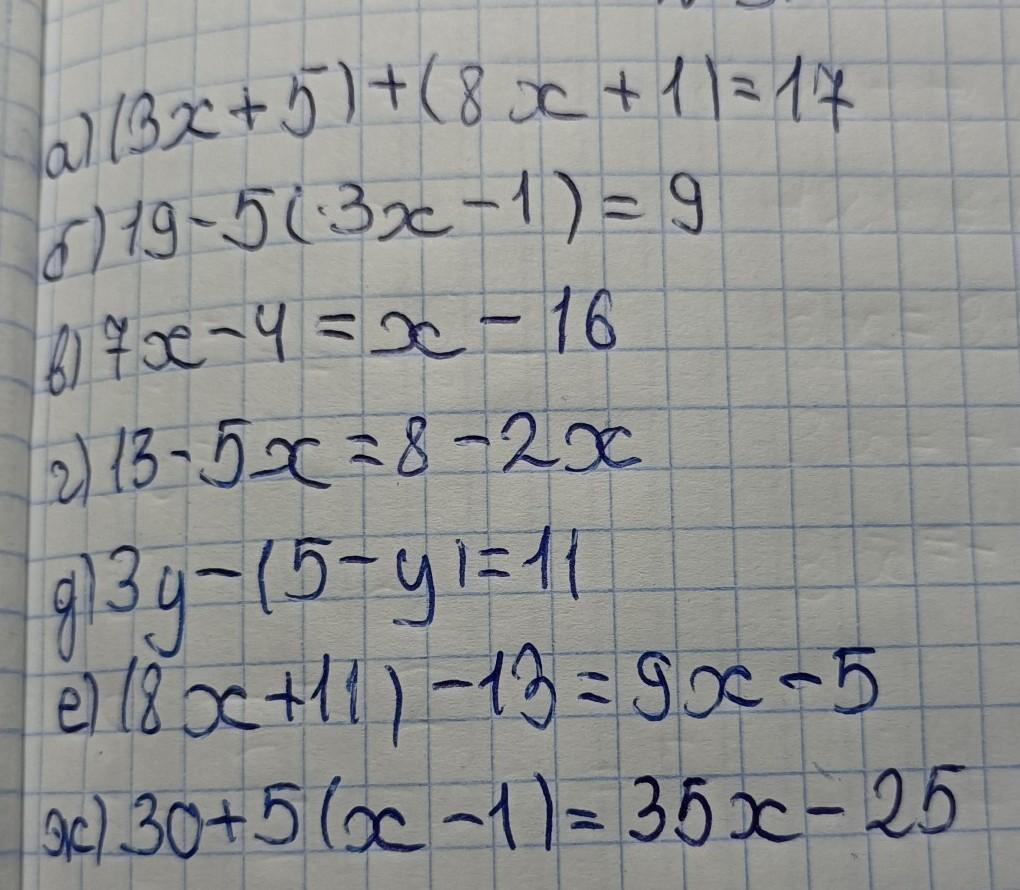 а) (3x + 5) + (8x + 1) = 17
б) 19 - 5(3x - 1) = 9
в) 7x - 4 = x - 16
г) 13 - 5x = 8 - 2x
д) 3y - (5 - y) = 11
е) (8x + 11) - 13 = 9x - 5
ж) 30 + 5(x - 1) = 35x - 25